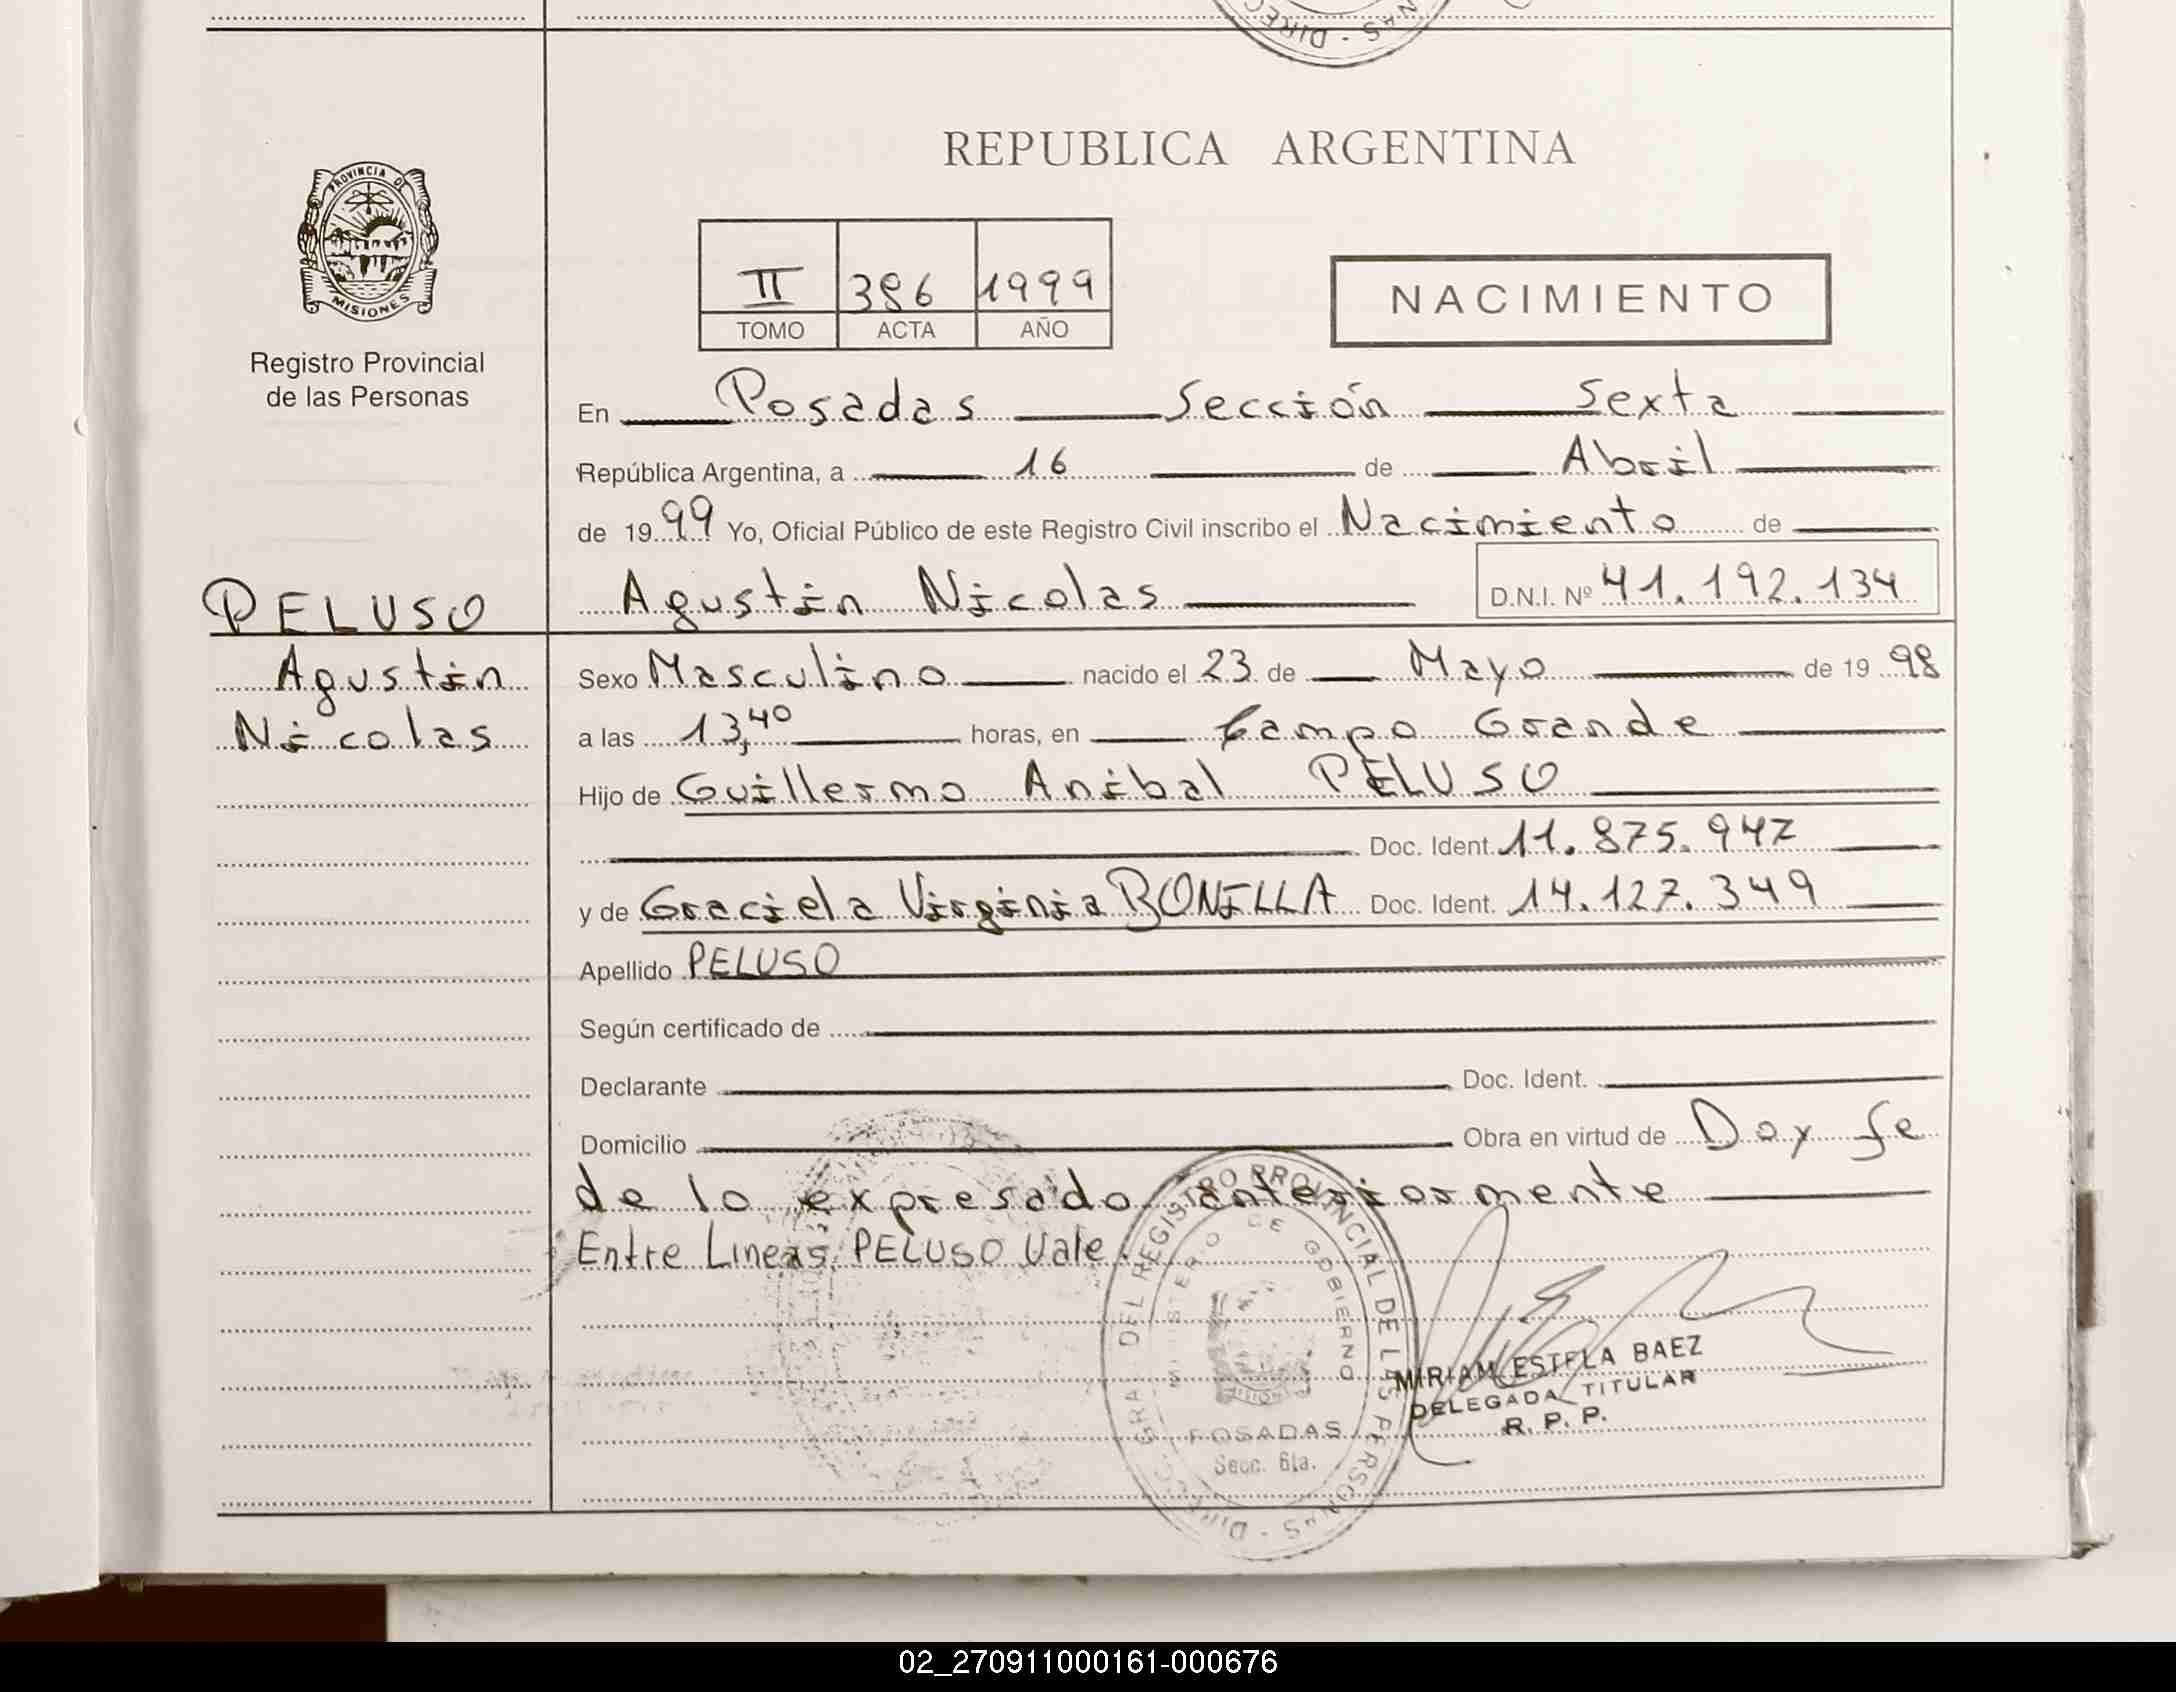 DIREC NAS
REPUBLICA ARGENTINA
PROVINCIA DE
MISIONES
Registro Provincial
de las Personas
II 386 1999
TOMO ACTA AÑO
NACIMIENTO
En Posadas Sección Sexta
República Argentina, a 16 de Abril
de 1999 Yo, Oficial Público de este Registro Civil inscribo el Nacimiento de
PELUSO Agustin Nicolas D.N.I. Nº 41.192.134
Agustin Sexo Masculino nacido el 23 de Mayo de 1998
Nicolas a las 13,40 horas, en Campo Grande
Hijo de Guillermo Anibal PELUSO
Doc. Ident. 11.875.947
y de Graciela Virginia BONILLA Doc. Ident. 14.127.349
Apellido PELUSO
Según certificado de
Declarante Doc. Ident.
Domicilio Obra en virtud de Doy fe
de lo expresado anteriormente
Entre Lineas PELUSO Vale.
DIREC. GRAL. DEL REGISTRO PROVINCIAL DE LAS PERSONAS
MINISTERIO DE GOBIERNO
POSADAS
Secc. 6ta.
MIRIAM ESTELA BAEZ
DELEGADA TITULAR
R. P. P.
02_270911000161-000676